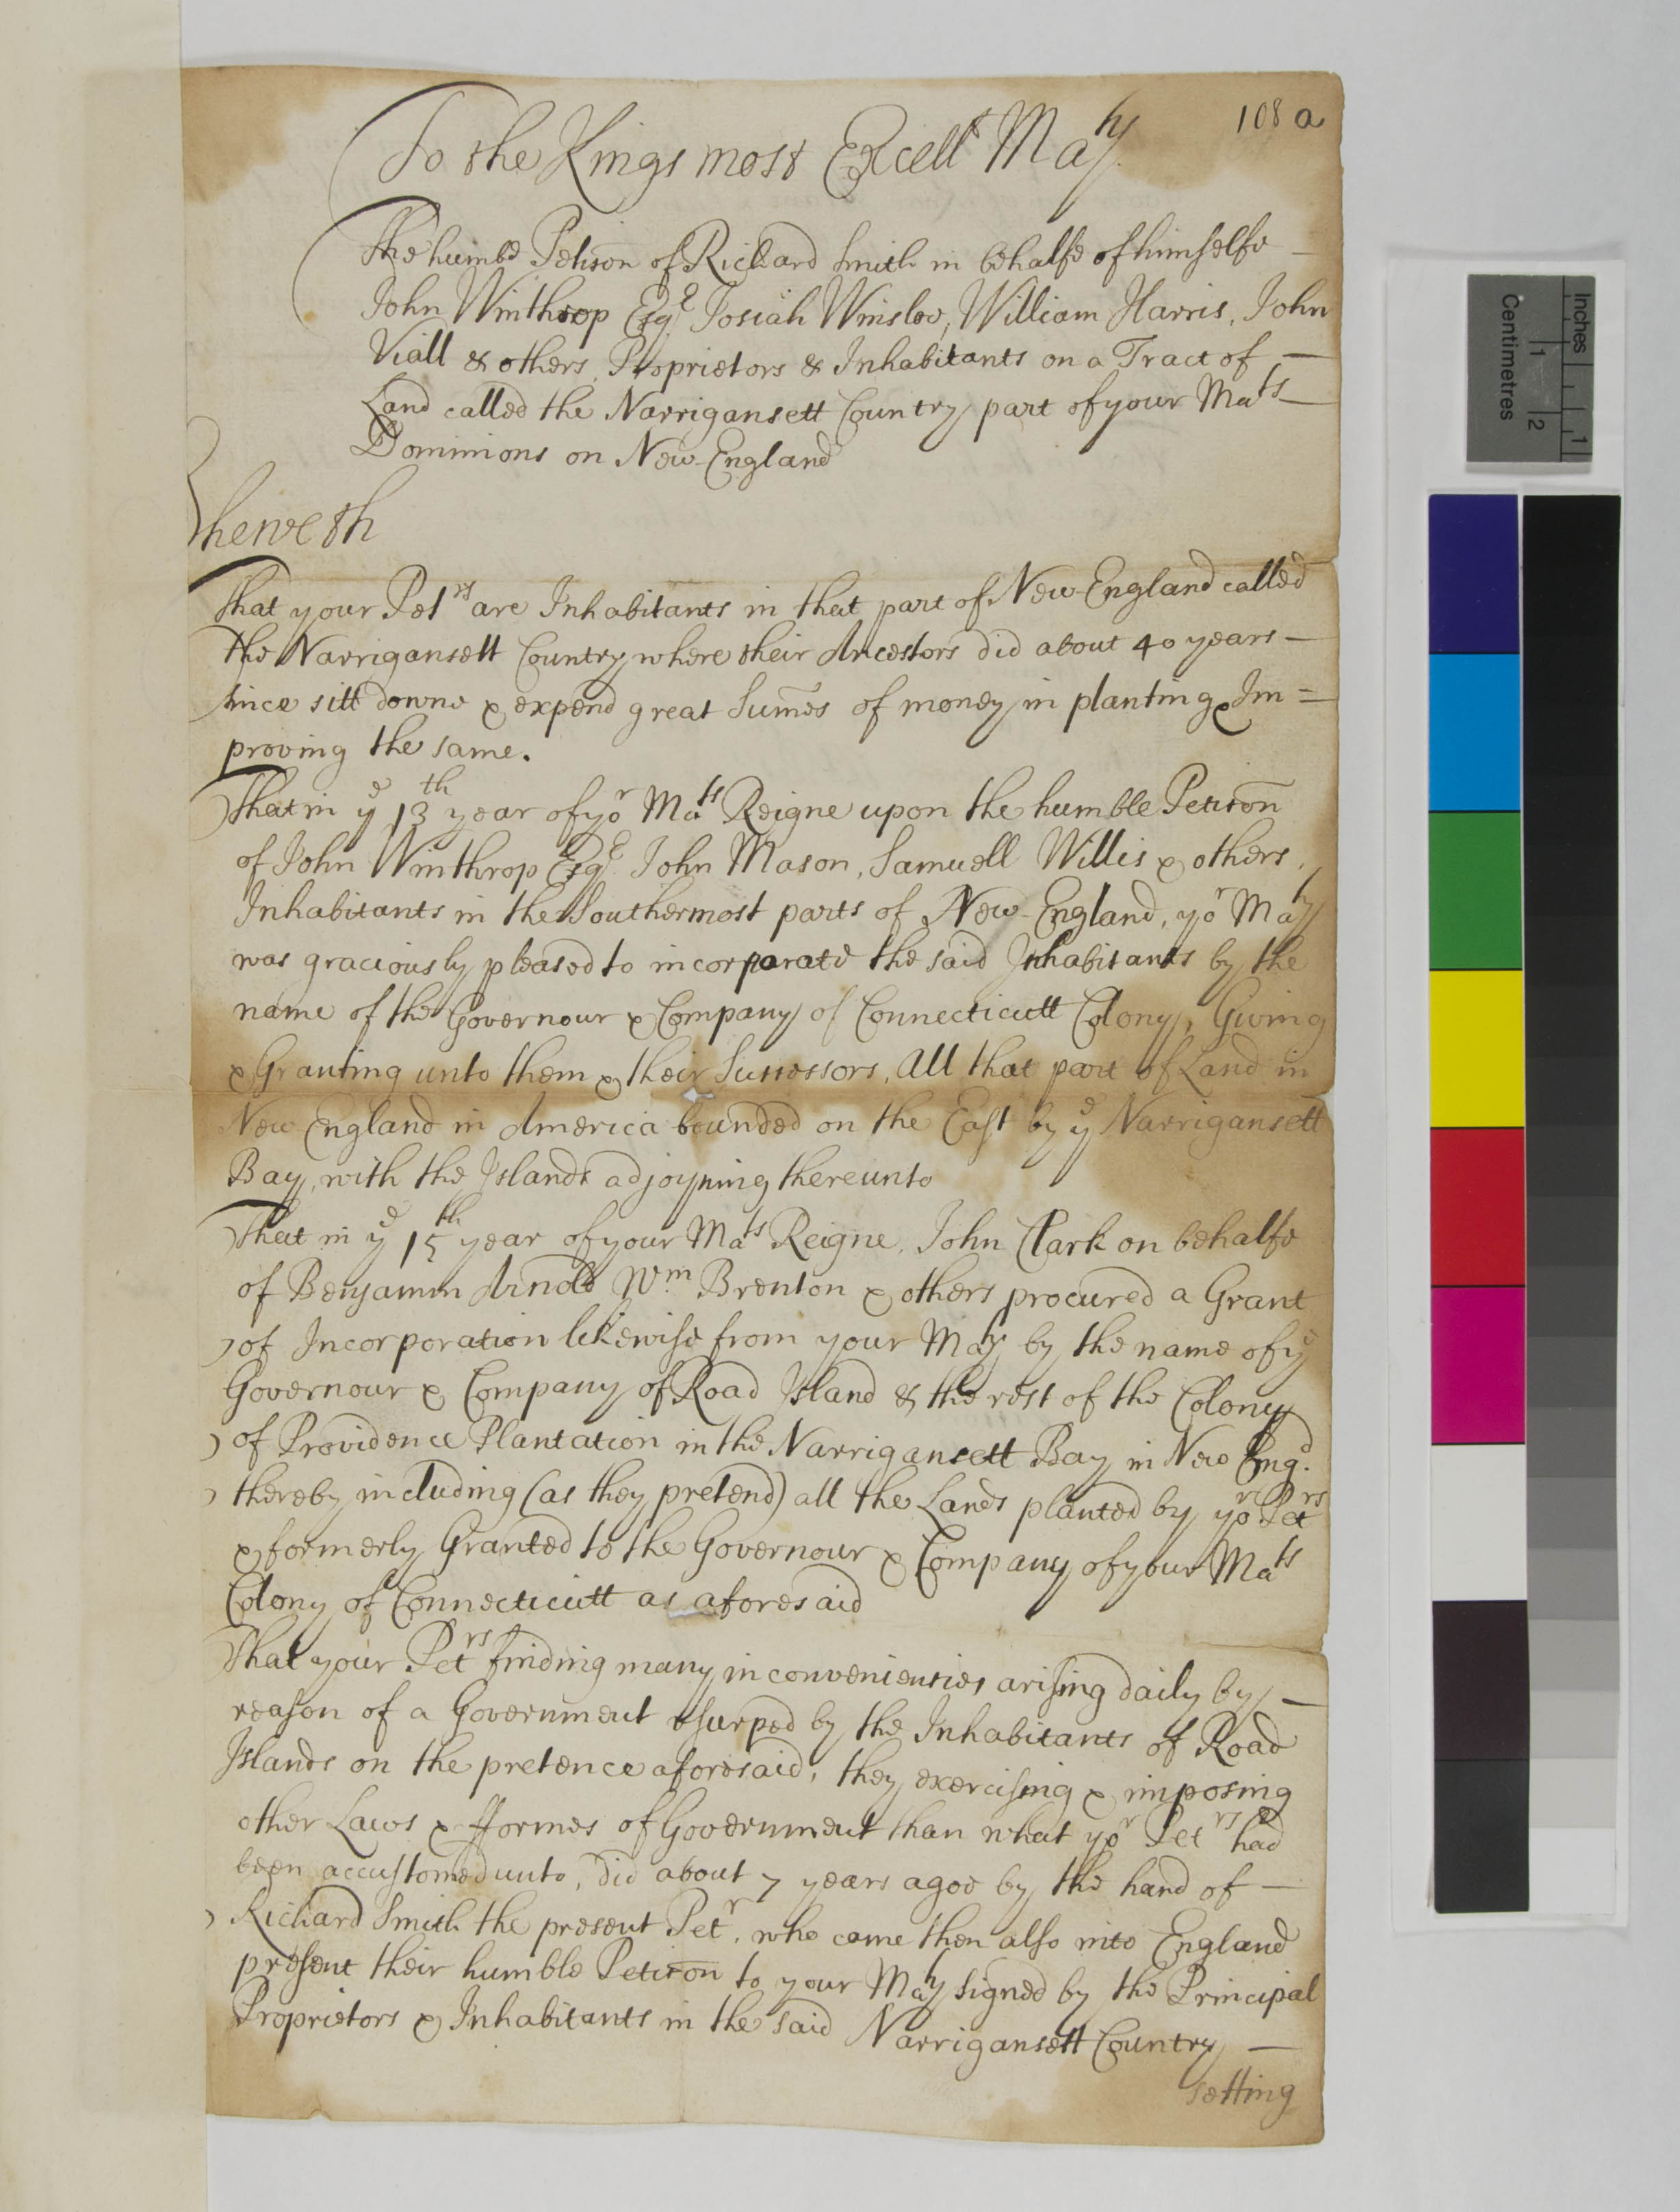 108 a
To the Kings most Excellt Maty
The humble Petition of Richard Smith in behalfe of himselfe —
John Winthrop Esqe Josiah Winslow, William Harris, John
Viall & others, Proprietors & Inhabitants on a Tract of —
Land called the Narrigansett Country part of your Mats —
Dominions on New-England
Sheweth
That your Petrs are Inhabitants in that part of New England called
the Narrigansett Country where their Ancestors did about 40 years —
since sitt downe & expend great Sumes of money in planting & Im =
proving the same.
That in ye 13th year of yor Mats Reigne upon the humble Petition
of John Winthrop Esqe John Mason, Samuell Willis & others,
Inhabitants in the Southermost parts of New-England, yor Maty
was graciously pleased to incorparate the said Inhabitants by the
name of the Governour & Company of Connecticutt Colony, Giving
& Granting unto them & their Successors, All that part of Land in
New England in America bounded on the East by ye Narrigansett
Bay, with the Islands adjoyning thereunto
That in ye 15th year of your Mats Reigne, John Clark on behalfe
of Benjamin Arnold Wm. Brenton & others procured a Grant
of Incorporation likewise from your Maty by the name of ye
Governour & Company of Road Island & the rest of the Colony
of Providence Plantation in the Narrigansett Bay in New Engd.
thereby including (as they pretend) all the Lands planted by yor Petrs
& formerly Granted to the Governour & Company of your Mats
Colony of Connecticutt as aforesaid
That your Petrs finding many inconveniencies arising daily by —
reason of a Government usurped by the Inhabitants of Road
Islands on the pretence aforesaid, they exercising & imposing
other Laws & fformes of Government than what yor Petrs had
been accustomed unto, did about 7 years agoe by the hand of —
Richard Smith the present Petr, who came then also into England
present their humble Petition to your Maty signed by the Principal
Proprietors & Inhabitants in the said Narrigansett Country —
setting
Inches
1
Centimetres
1
2